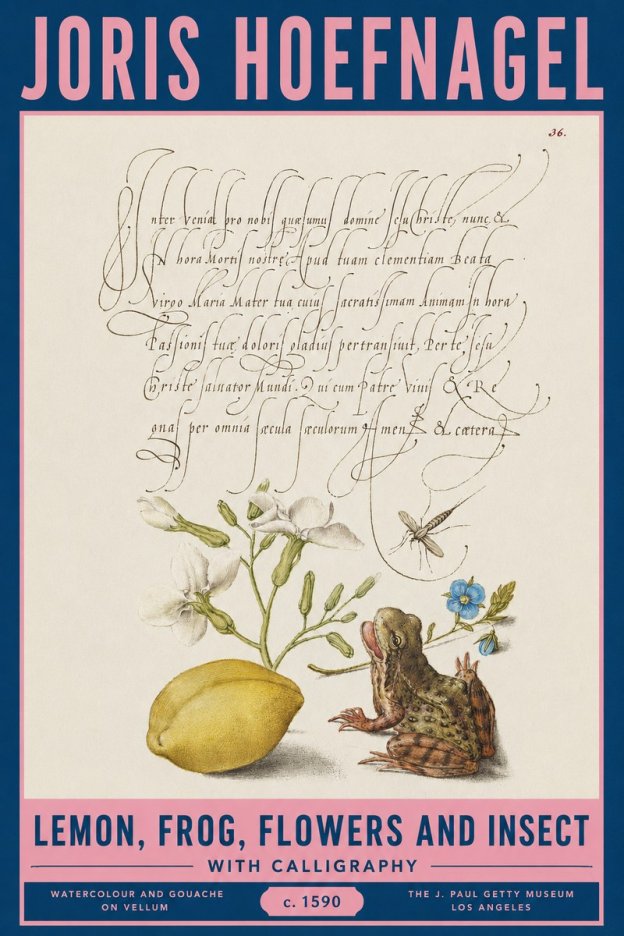 JORIS HOEFNAGEL
36.
Inter veniat pro nobis quæsumus domine Iesu Christe, nunc &
IN hora Mortis nostre, Apud tuam clementiam Beata
virgo Maria Mater tua cuius sacratissimam Animam in hora
Passionis tuæ doloris gladius pertransiuit, Per te Iesu
Christe saluator Mundi. Qui cum Patre viuis & Re
gnas per omnia sæcula sæculorum Amen & cætera
LEMON, FROG, FLOWERS AND INSECT
WITH CALLIGRAPHY
WATERCOLOUR AND GOUACHE
ON VELLUM
c. 1590
THE J. PAUL GETTY MUSEUM
LOS ANGELES